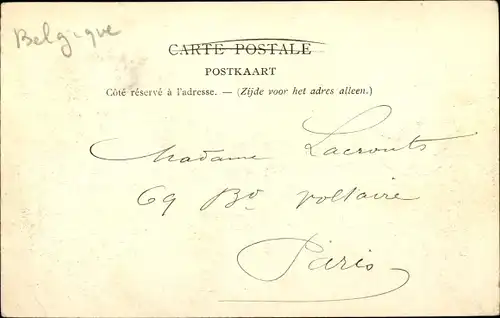 Belgique
CARTE POSTALE
POSTKAART
Côté réservé à l'adresse. — (Zijde voor het adres alleen.)
Madame Lacronts
69 Bd voltaire
Paris